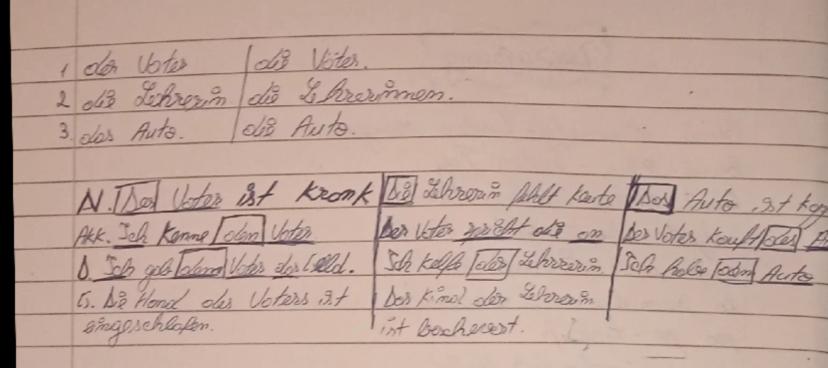 1 der Vater die Väter.
2 die Lehrerin die Lehrerinnen.
3. das Auto. die Auto.
N. Der Vater ist Kronk Die Lehrerin fehlt heute Das Auto ist
Akk. Ich Kenne den Vater Der Vater spricht die an Der Vater Kauft das
D. Ich gab dem Vater das Geld. Ich helfe der Lehrerin Ich dem Auto
G. Die Hand des Vaters ist Das Kind der Lehrerin
eingeschlafen. ist